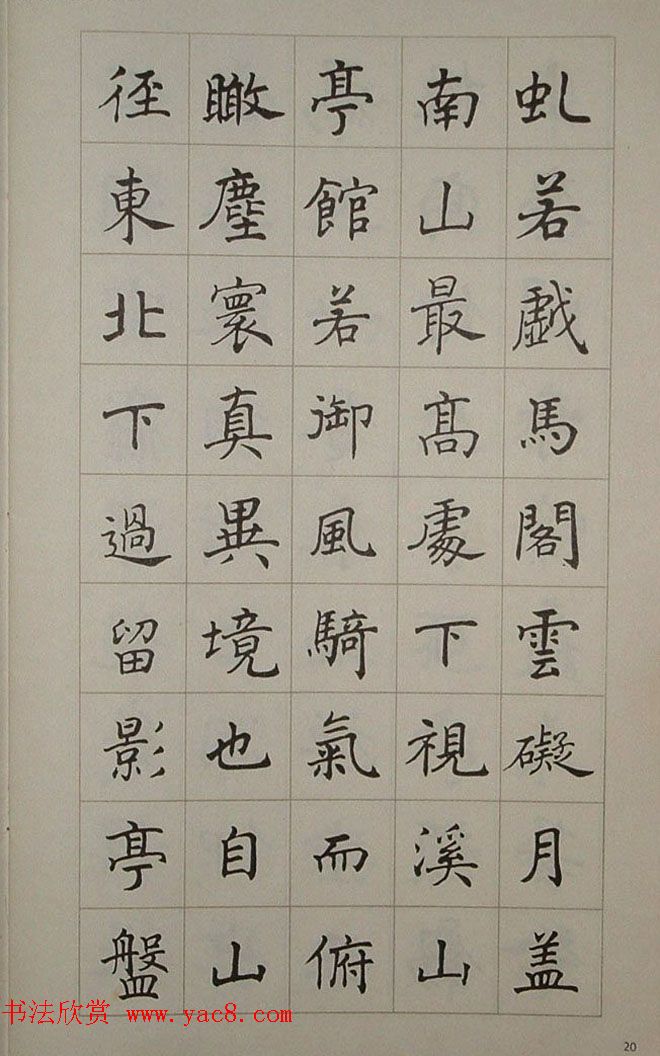 虬若戲馬閣雲礙月盖
南山最髙處下視溪山
亭館若御風騎氣而俯
瞰塵寰真異境也自山
徑東北下過留影亭盤
书法欣赏 www.yac8.com
20